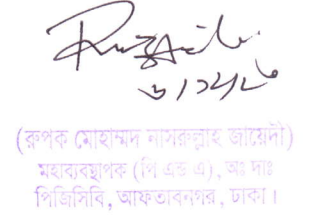 ৬/১২/২৩
(রুপক মোহাম্মদ নাসরুল্লাহ জায়েদী)
মহাব্যবস্থাপক (পি এন্ড এ), অঃ দাঃ
পিজিসিবি, আফতাবনগর, ঢাকা।